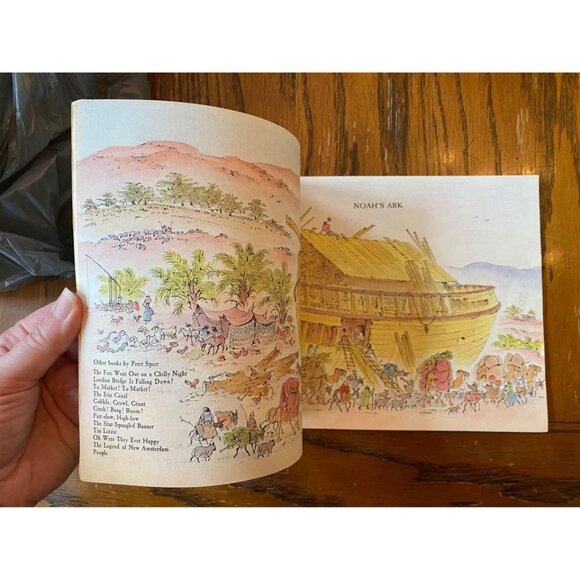 Other books by Peter Spier
The Fox Went Out on a Chilly Night
London Bridge Is Falling Down!
To Market! To Market!
The Erie Canal
Gobble, Growl, Grunt
Crash! Bang! Boom!
Fast-slow, High-low
The Star-Spangled Banner
Tin Lizzie
Oh Were They Ever Happy
The Legend of New Amsterdam
People
NOAH'S ARK